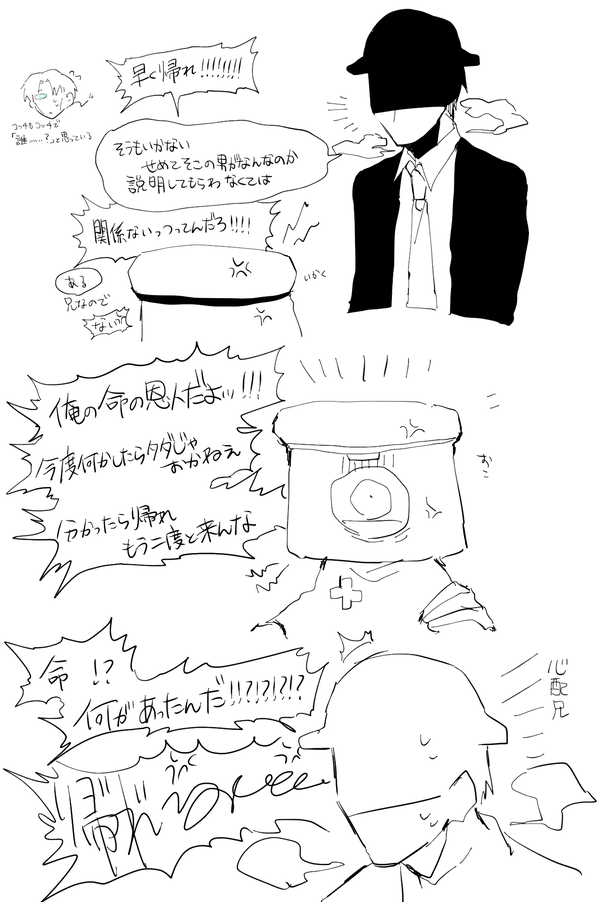 早く帰れ!!!!!!!!
コッチもコッチで
「誰……?」と思っている
そうもいかない
せめてそこの男がなんなのか
説明してもらわなくては
関係ないっつってんだろ!!!!
ある
兄なので
ない!!
いかく
俺の命の恩人だよッ!!!
今度何かしたらタダじゃ
おかねえ
分かったら帰れ
もう二度と来んな
おこ
命!?
何があったんだ!!?!?!?!?
心配兄